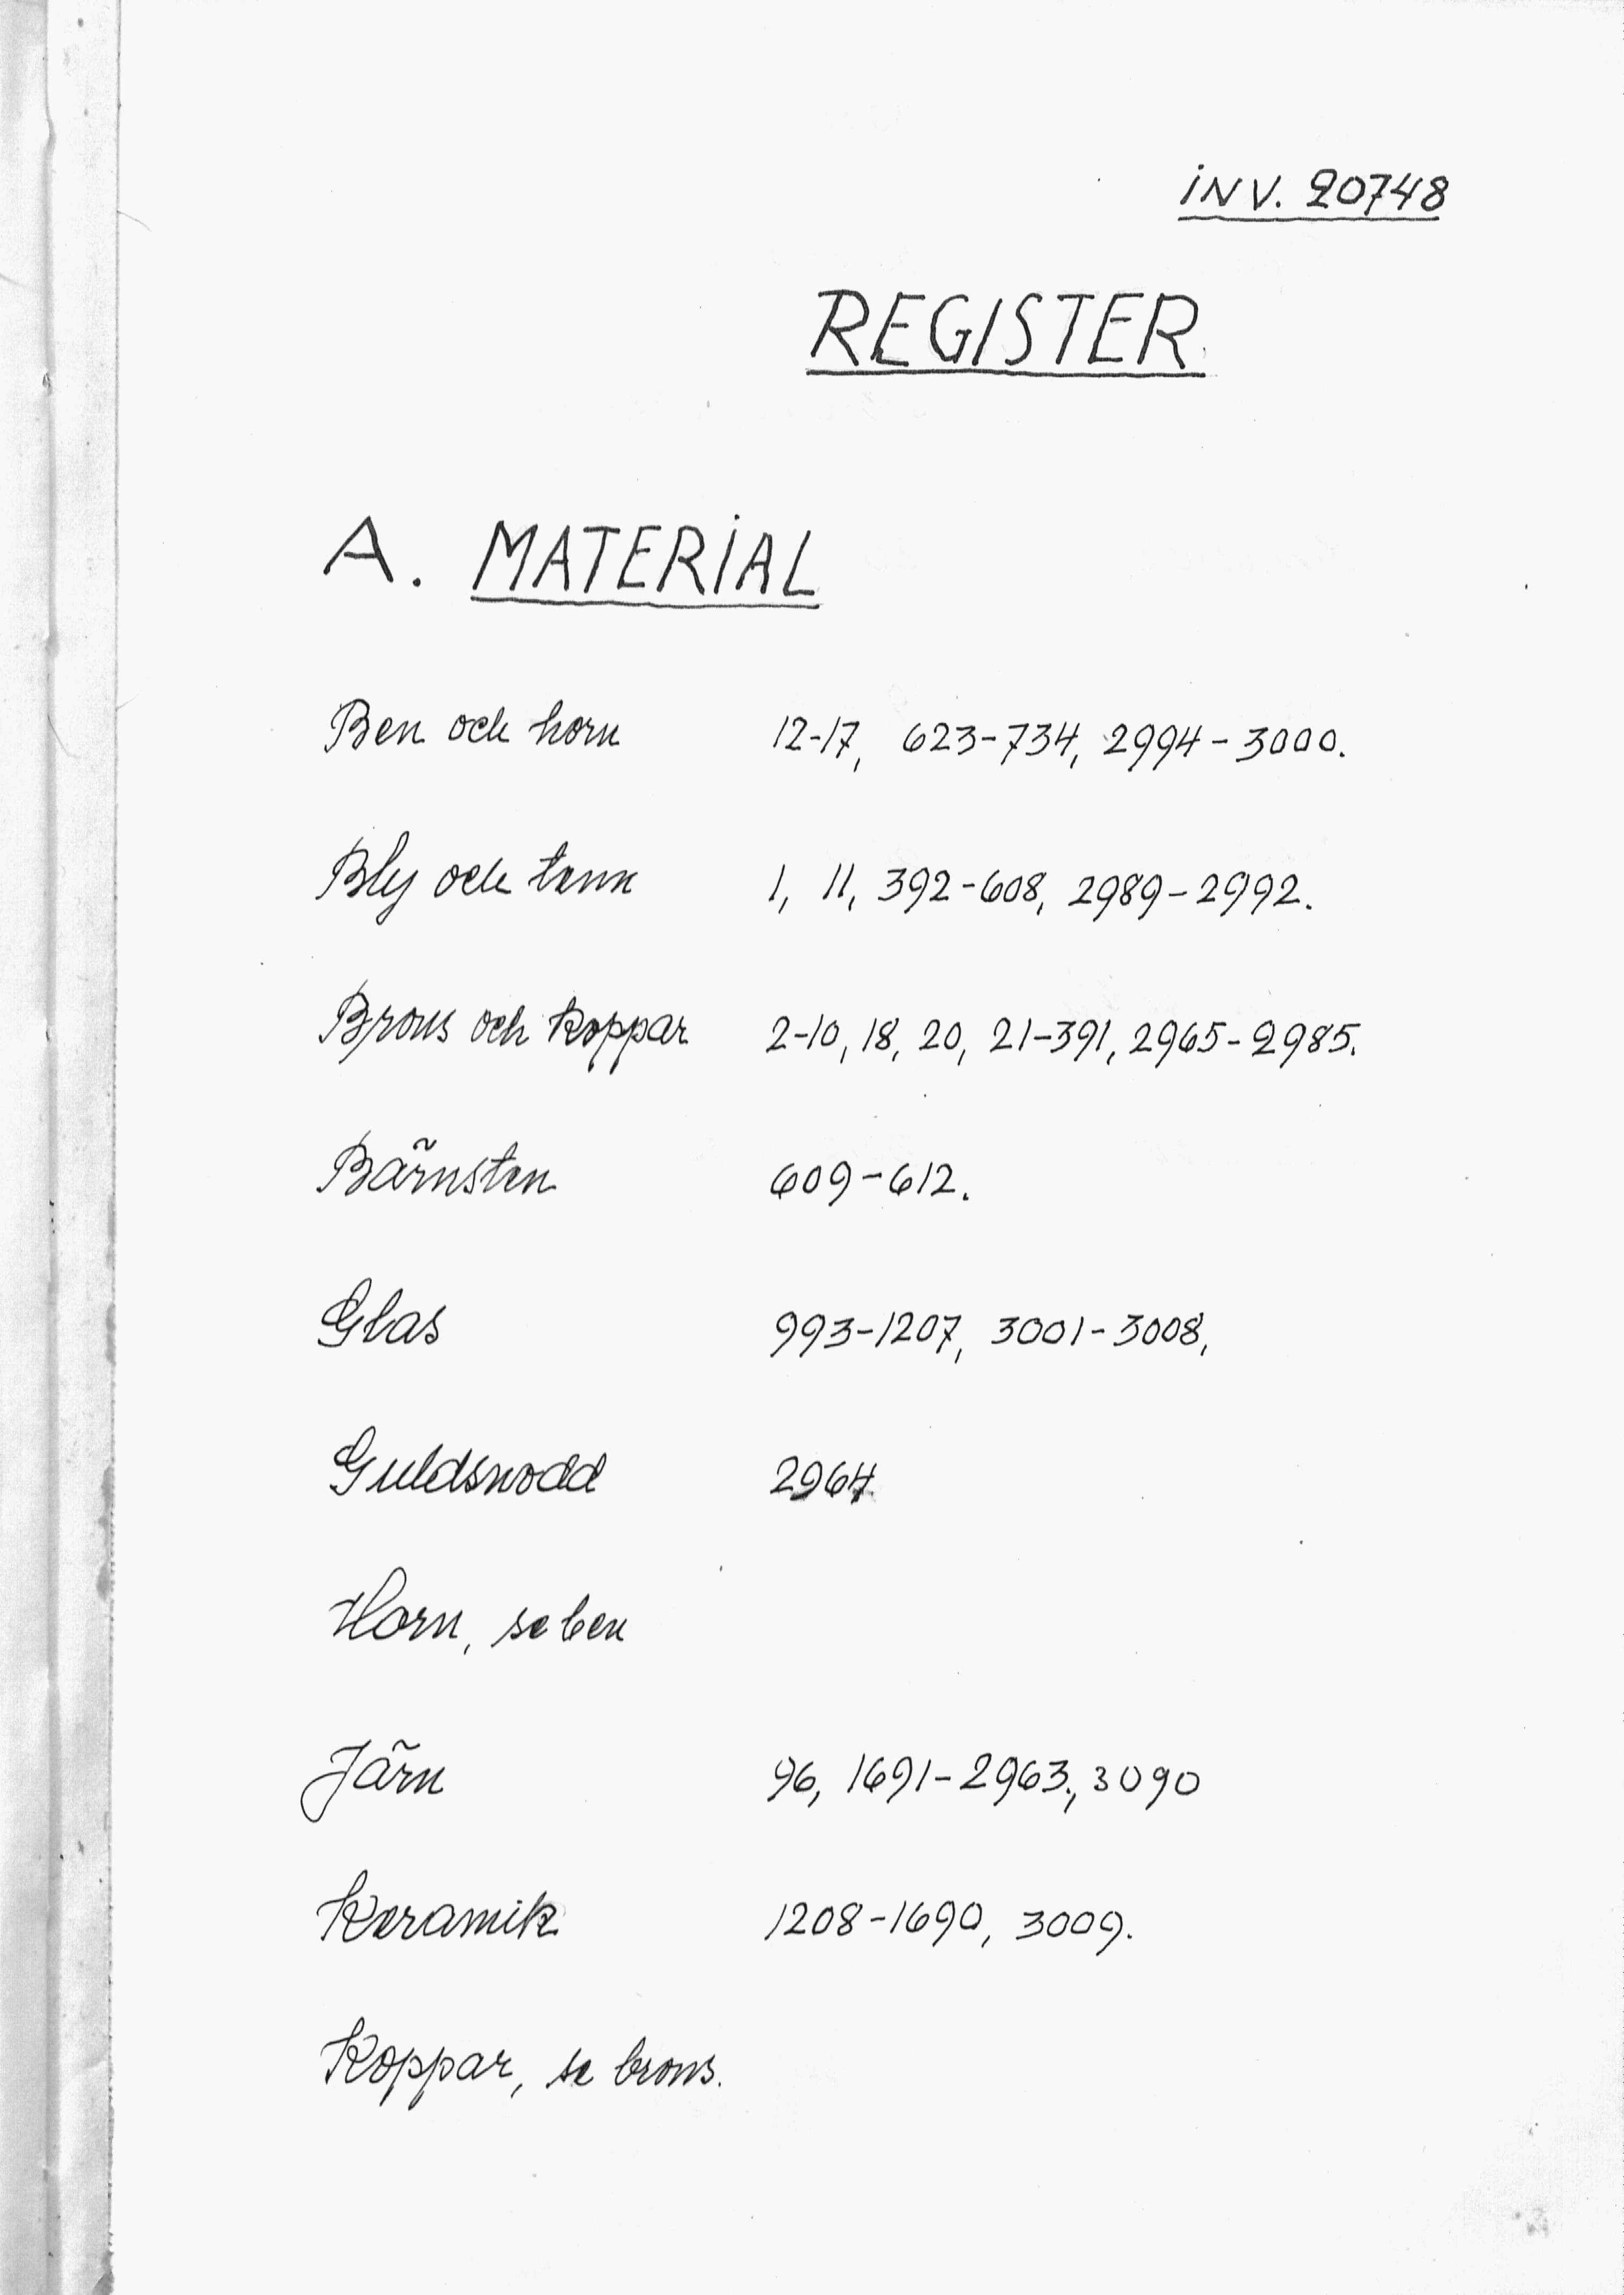 INV. 20748
REGISTER.
A. MATERIAL
Ben och horn 12-17, 623-734, 2994-3000.
Bly och tenn 1, 11, 392-608, 2989-2992.
Brons och koppar 2-10, 18, 20, 21-391, 2965-2985.
Bärnsten 609-612.
Glas 993-1207, 3001-3008,
Guldsnodd 2964
Horn, se ben
Järn 96, 1691-2963., 3090
Keramik 1208-1690, 3009.
Koppar, se brons.